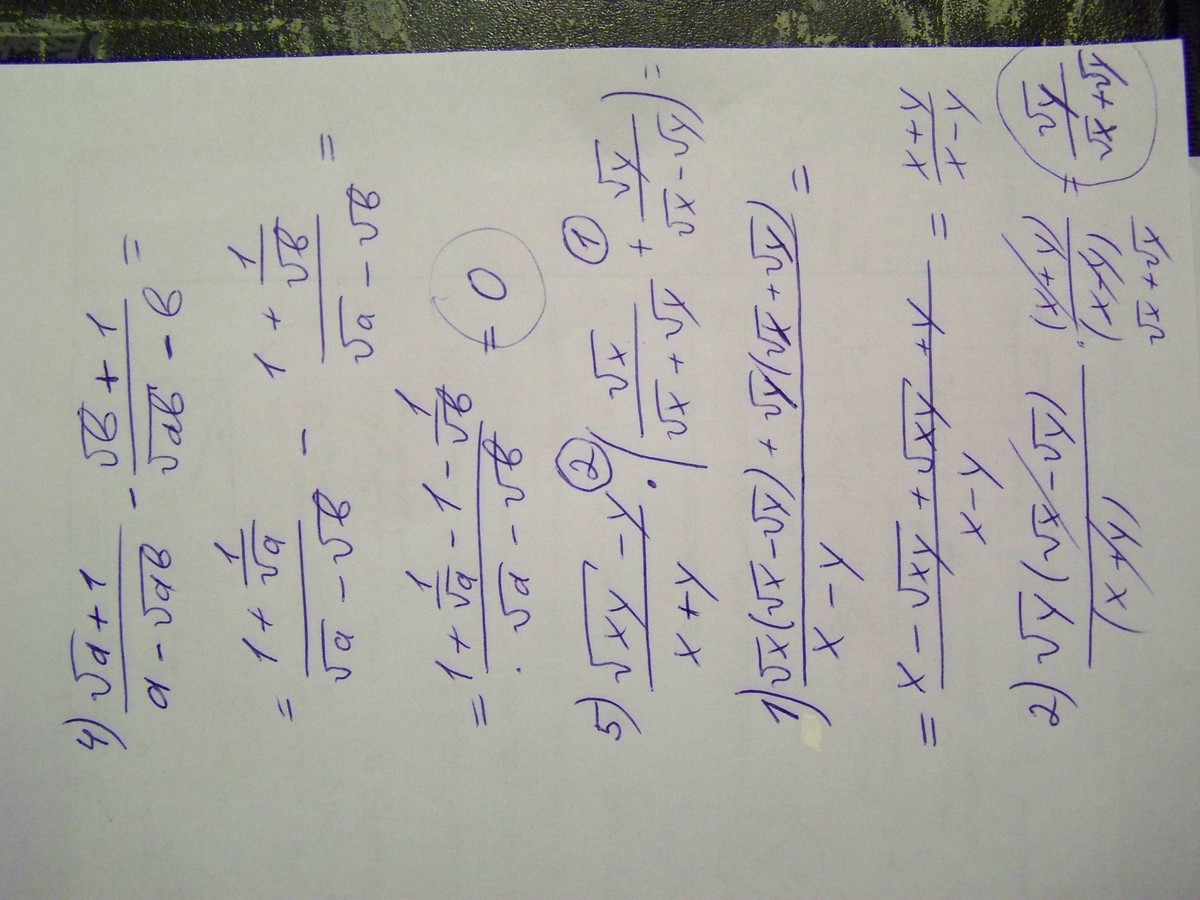 4) (√a + 1)/(a − √ab) − (√в + 1)/(√ab − в) =
= (1 + 1/√a)/(√a − √в) − (1 + 1/√в)/(√a − √в) =
= (1 + 1/√a − 1 − 1/√в)/(√a − √в) = 0
5) (√xy − y)/(x + y) ② · (√x/(√x + √x) ① + √y/(√x − √y)) =
1) (√x(√x − √y) + √y(√x + √y))/(x − y) =
= (x − √xy + √xy + y)/(x − y) = (x + y)/(x − y)
2) (√y(√x − √y))/(x + y) · (x + y)/(x + y) = √y/(√x + √y)
√x + √x